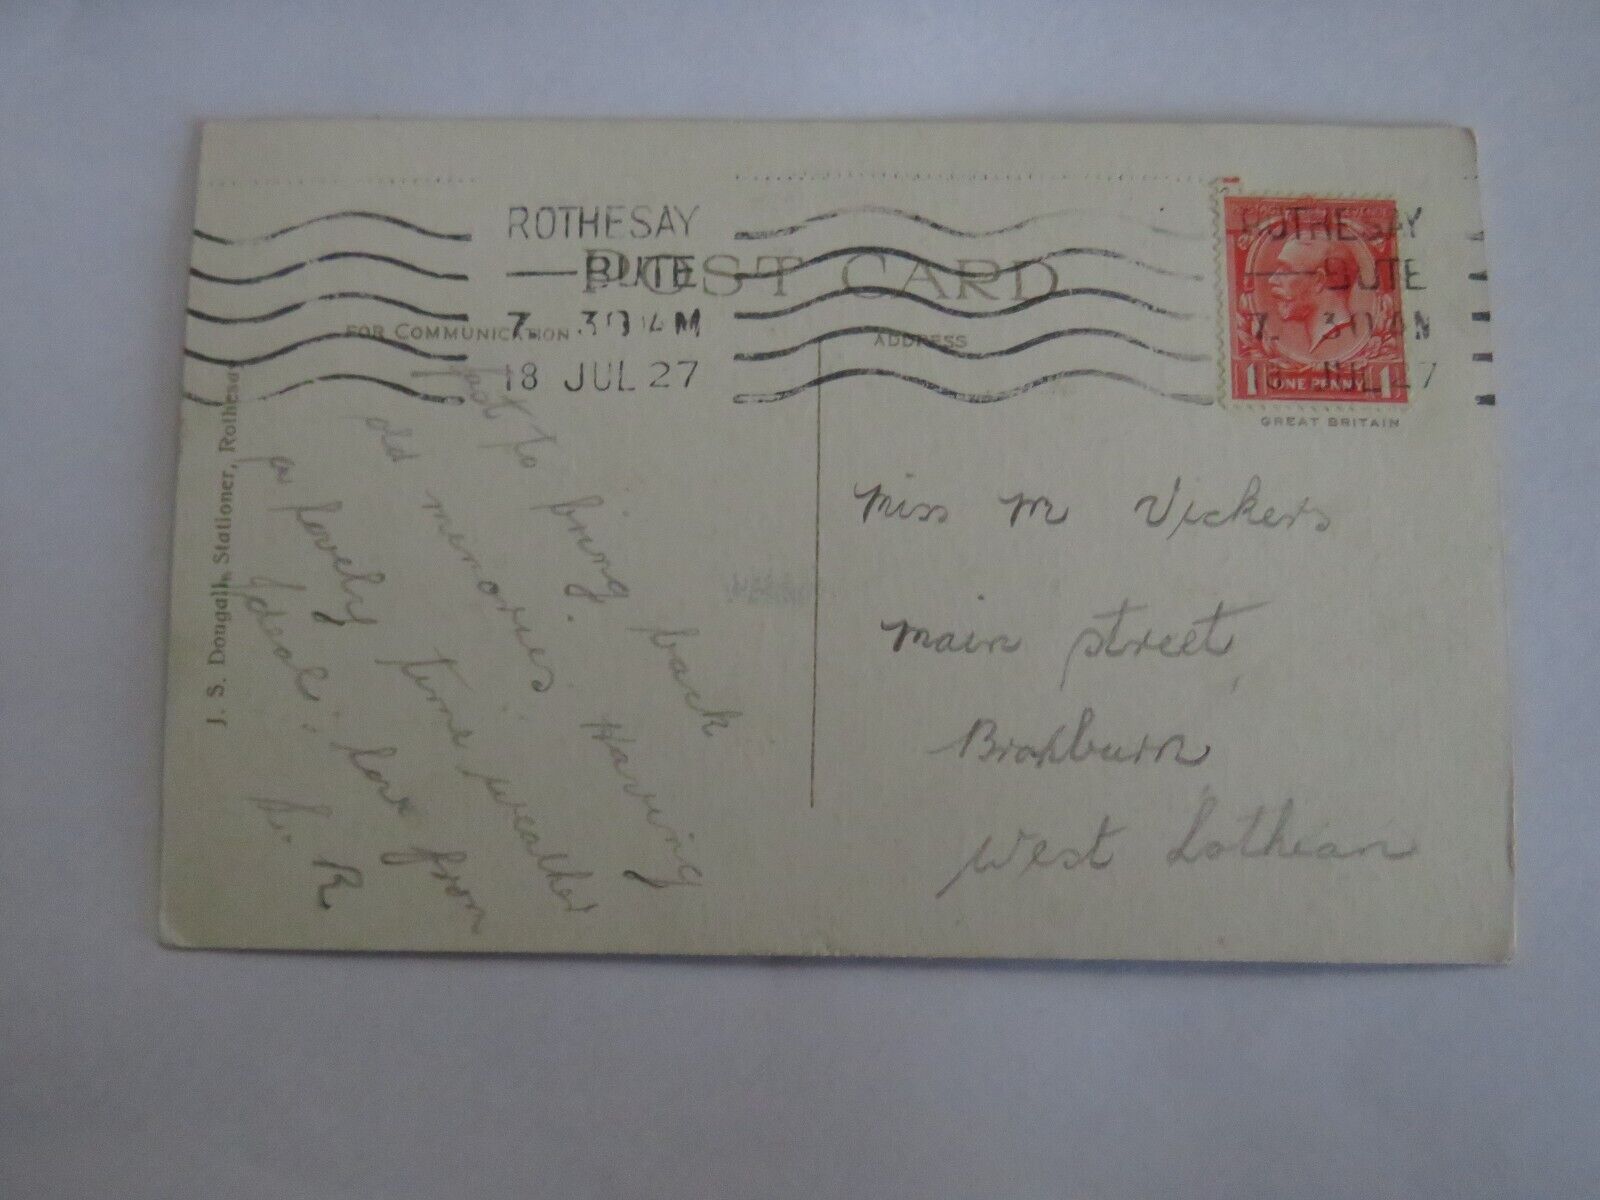 ROTHESAY
BUTE
7. 30 AM
18 JUL 27
ROTHESAY
BUTE
7. 30 AM
18 JUL 27
POST CARD
FOR COMMUNICATION
ADDRESS
1 ONE PENNY 1
GREAT BRITAIN
J. S. Dougall, Stationer, Rothesay
Just to bring back
old memories. Having
a lovely time weather
ideal. love from
R
Miss M Vickers
Main Street,
Broxburn
West Lothian